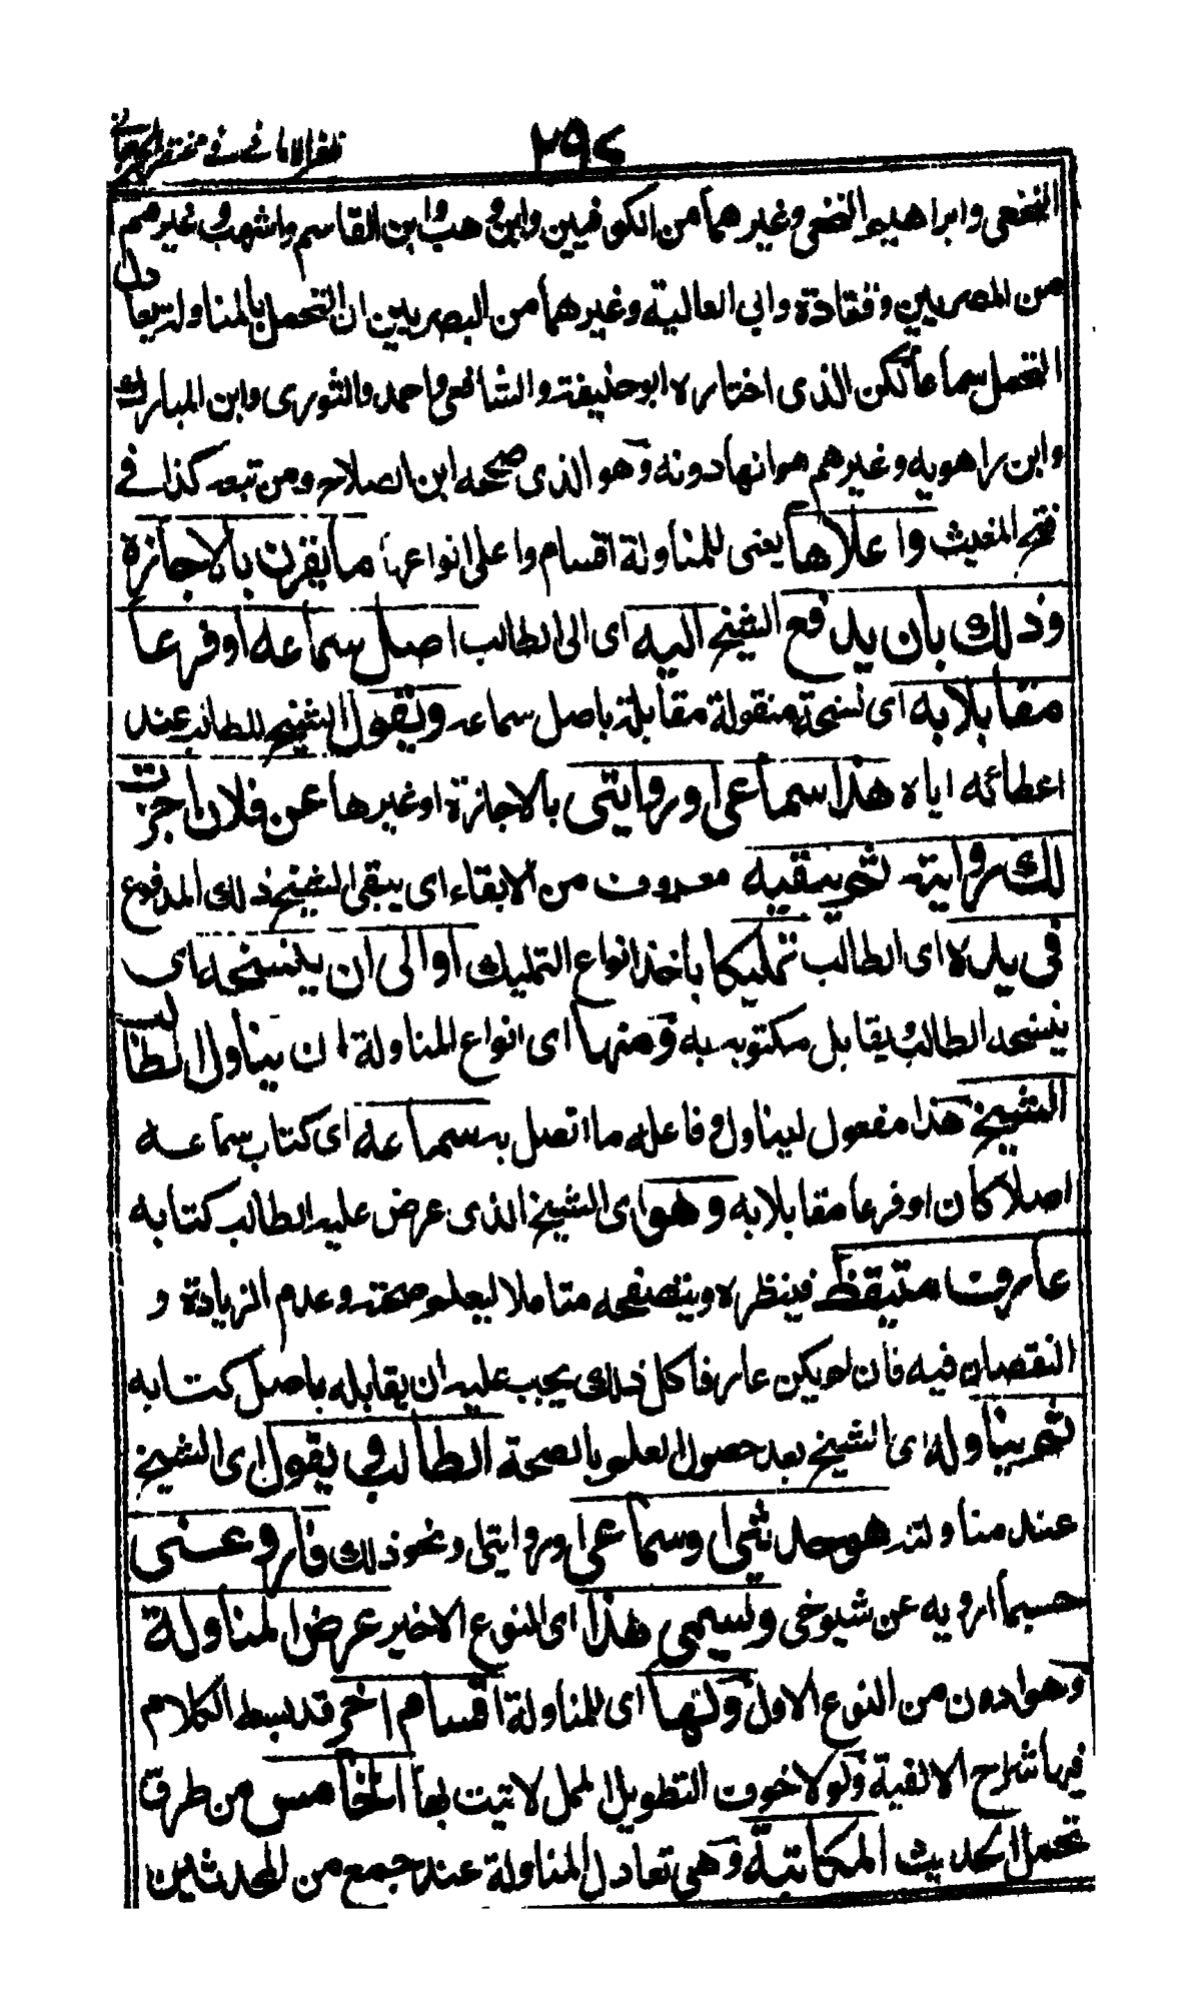 ٢٩٧ ظفر الامانی فی مختصر الجرجانی
النخعی وابراهیم النخعی وغیرهما من الکوفیین وابن وهب وابن القاسم واشهب وغیرهم
من المصریین وقتادة وابی العالیة وغیرهما من البصریین ان التحمل بالمناولة یعادل
التحمل سماعا لکن الذی اختاره ابو حنیفة والشافعی واحمد والثوری وابن المبارك
وابن راهویه وغیرهم هو انها دونه وهو الذی صححه ابن الصلاح ومن تبعه کذا فی
فتح المغیث واعلاها یعنی للمناولة اقسام واعلی انواعها ما یقرن بالاجازة
وذلك بان یدفع الشیخ الیه ای الی الطالب اصل سماعه او فرعا
مقابلا به ای نسخة منقولة مقابلة باصل سماعه ویقول الشیخ للطالب عند
اعطائه ایاه هذا سماعی او روایتی بالاجازة او غیرها عن فلان اجزت
لك روایته ثم یبقیه معروف من الابقاء ای یبقی الشیخ ذلك المدفوع
فی یده ای الطالب تملیکا باخذ انواع التملیك او الی ان ینسخه ای
ینسخه الطالب ویقابل مکتوبه به ومنها ای انواع المناولة ان یناول الطالب
الشیخ هذا مفعول لیناول وفاعله ما اتصل به سماعه ای کتاب سماعه
اصلا کان او فرعا مقابلا به وهو ای الشیخ الذی عرض علیه الطالب کتابه
عارف متیقظ فینظره ویتصفحه متاملا لیعلم صحته وعدم الزیادة و
النقصان فیه فان لم یکن عارفا کل ذلك یجب علیه ان یقابله باصل کتابه
ثم یناوله ای الشیخ بعد حصول العلم بالصحة الطالب ویقول ای الشیخ
عند مناولته هو حدیثی او سماعی او روایتی ونحو ذلك فارو عنی
حسبما ارویه عن شیوخی ویسمی هذا ای النوع الاخیر عرض المناولة
وهو ادون من النوع الاول ولها ای للمناولة اقسام اخر قد بسط الکلام
فیها شراح الالفیة ولولا خوف التطویل الممل لاتیت بها الخامس من طرق
تحمل الحدیث المکاتبة وهی تعادل المناولة عند جمع من المحدثین